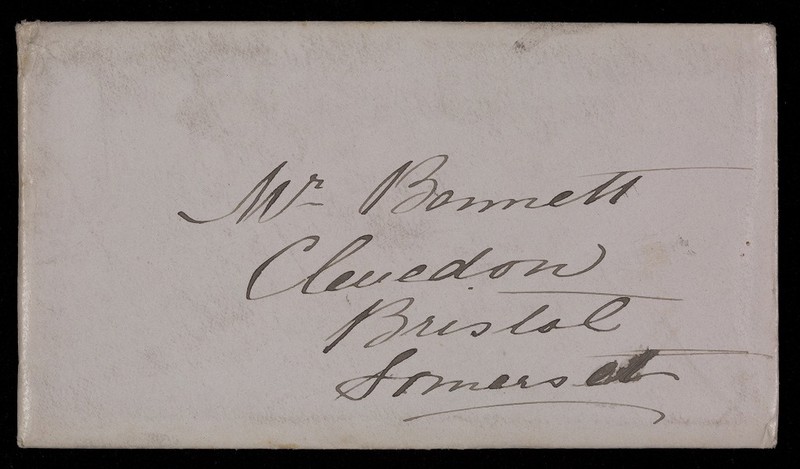 Mr Bennett
Clevedon
Bristol
Somerset